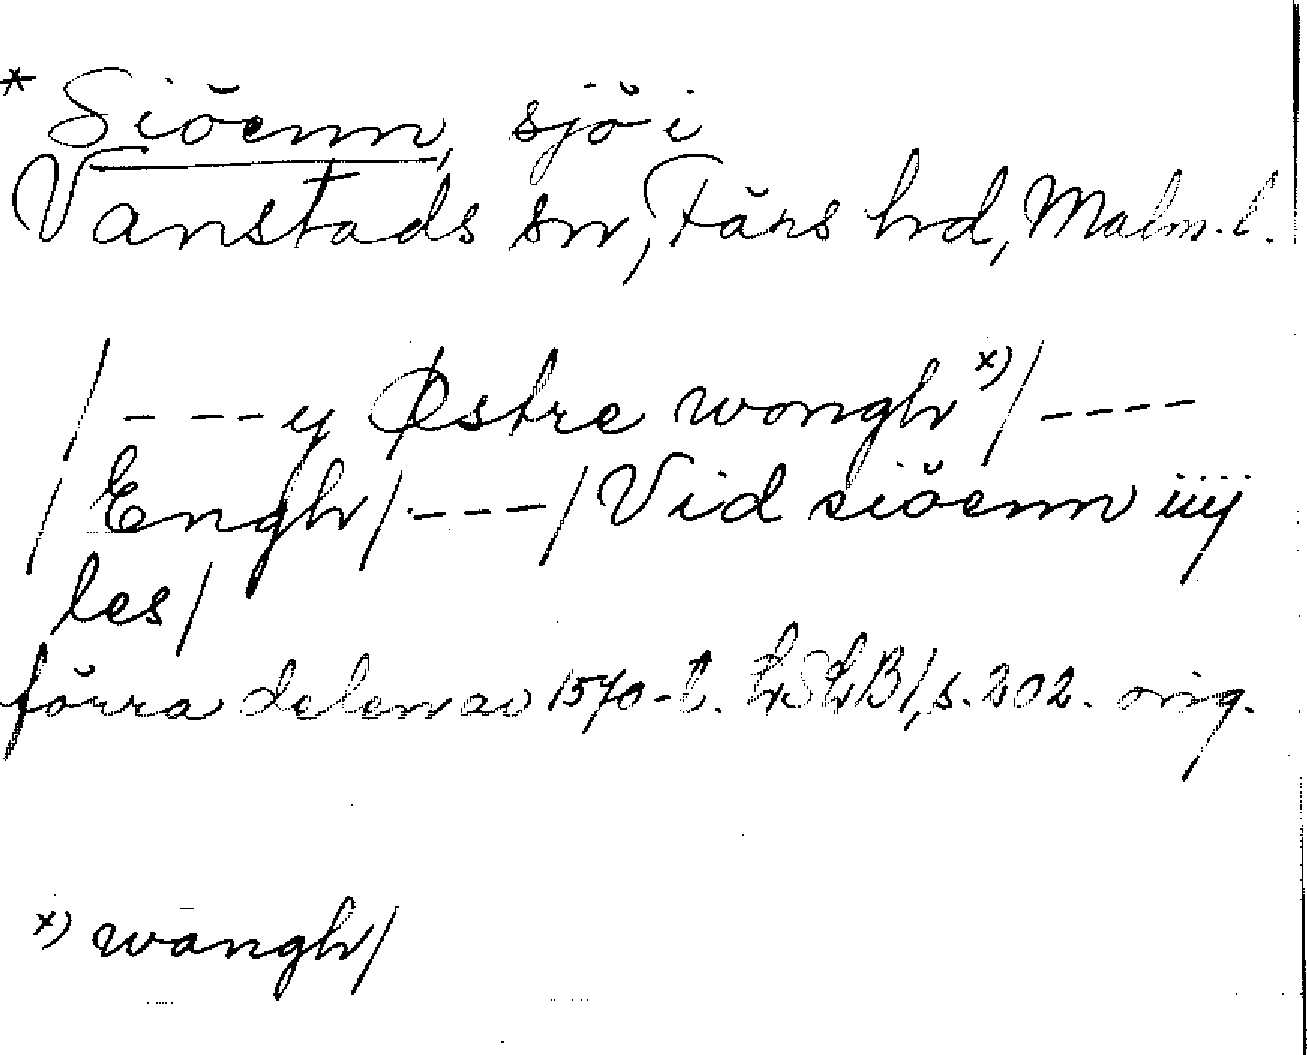 * Siöenn, sjö i
Vanstads sn, Färs hd, Malm. l.
/ - - - y Østre wongh x) / - - - -
/ Engh / - - - / Vid siöenn iiij
les /
förra delen av 1570-t. LSLB 1, s. 202. orig.
x) wångh /